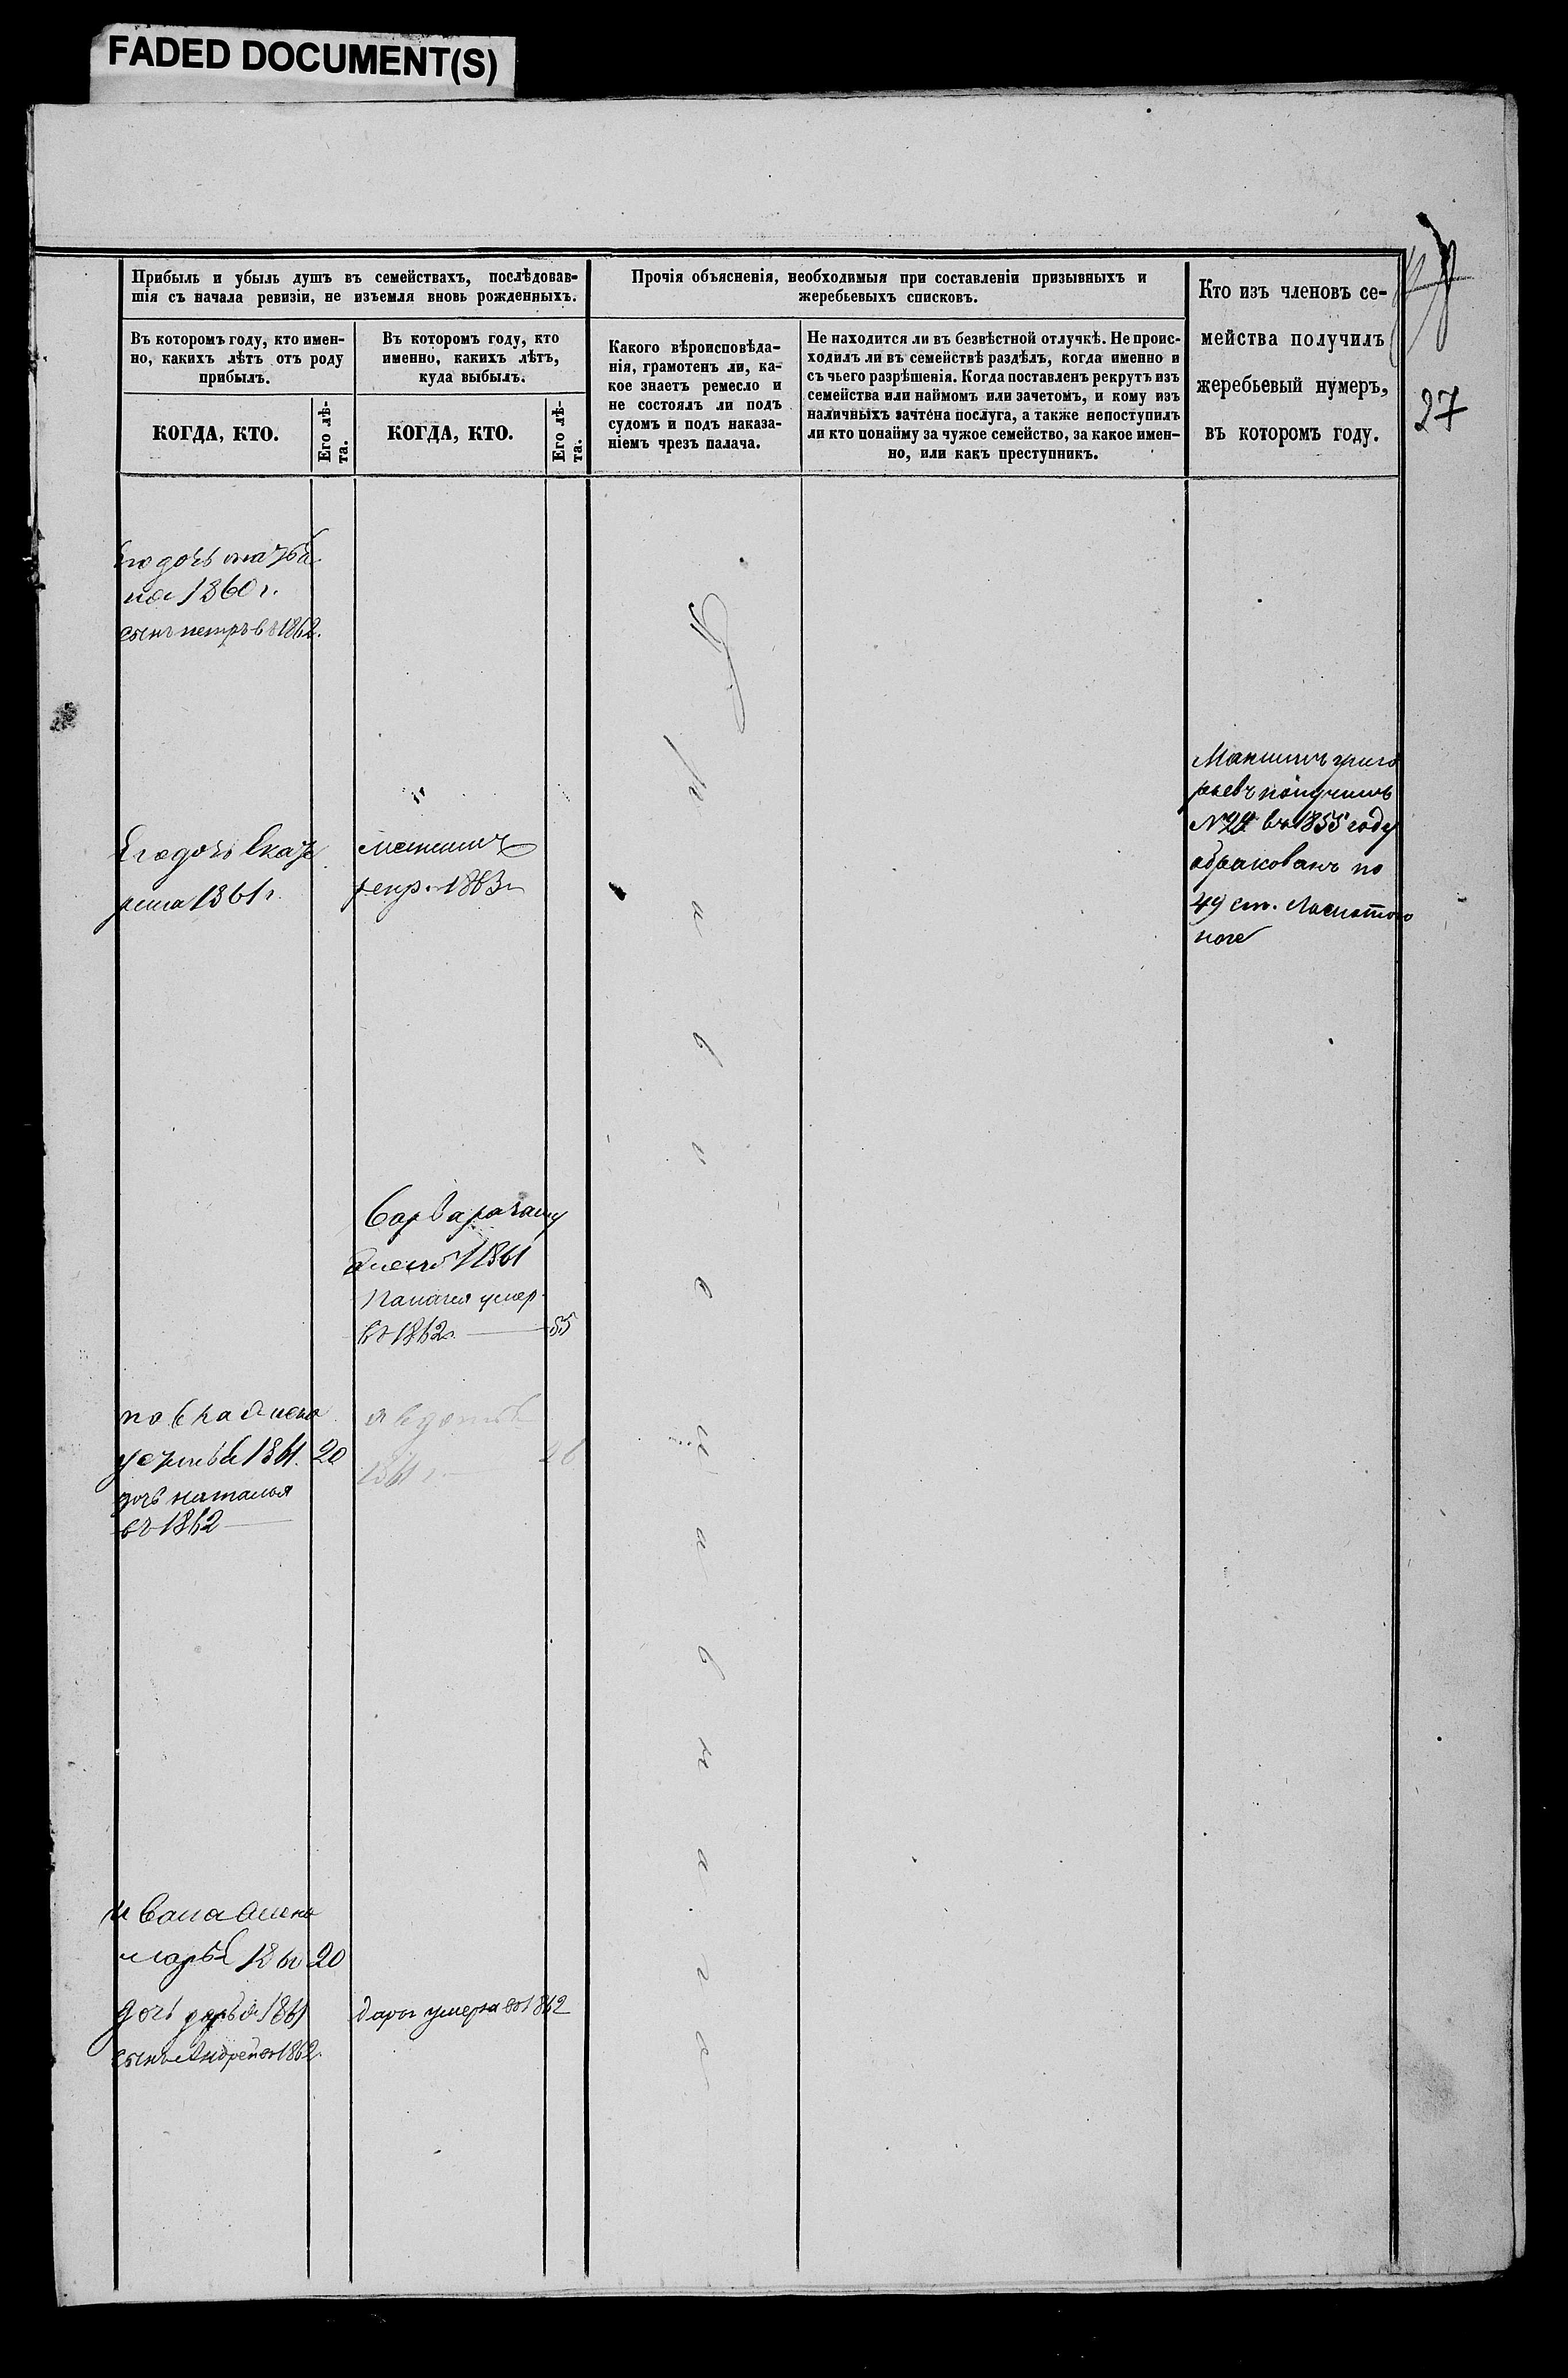 FADED DOCUMENT(S)
27
Прибыль и убыль душъ въ семействахъ, послѣдовав-
шія съ начала ревизіи, не изъемля вновь рожденныхъ.
Въ которомъ году, кто имен-
но, какихъ лѣтъ отъ роду
прибылъ.
КОГДА, КТО.
Его лѣ-
та.
Въ которомъ году, кто
именно, какихъ лѣтъ,
куда выбылъ.
КОГДА, КТО.
Его лѣ-
та.
Прочія объясненія, необходимыя при составленіи призывныхъ и
жеребьевыхъ списковъ.
Какого вѣроисповѣда-
нія, грамотенъ ли, ка-
кое знаетъ ремесло и
не состоялъ ли подъ
судомъ и подъ наказа-
ніемъ чрезъ палача.
Не находится ли въ безвѣстной отлучкѣ. Не проис-
ходилъ ли въ семействѣ раздѣлъ, когда именно и
съ чьего разрѣшенія. Когда поставленъ рекрутъ изъ
семейства или наймомъ или зачетомъ, и кому изъ
наличныхъ зачтена послуга, а также непоступилъ
ли кто понайму за чужое семейство, за какое имен-
но, или какъ преступникъ.
Кто изъ членовъ се-
мейства получилъ
жеребьевый нумеръ,
въ которомъ году.
Его дочь
на 1860 г.
сынъ петръ въ 1862.
Его дочь Екате
рина 1861 г.
1863 г
Максимъ григо
рьевъ получилъ
въ 1855 году
обракованъ по
49 ст.
ноге
Варвара замуж
1861
умер.
въ 1862 г. 55
павла жена
1861. 20
дочь наталья
въ 1862
1861 г.
ивана жена
марья 1860 20
дочь дарья 1861
сынъ Андрей въ 1862.
дарья умерла въ 1862